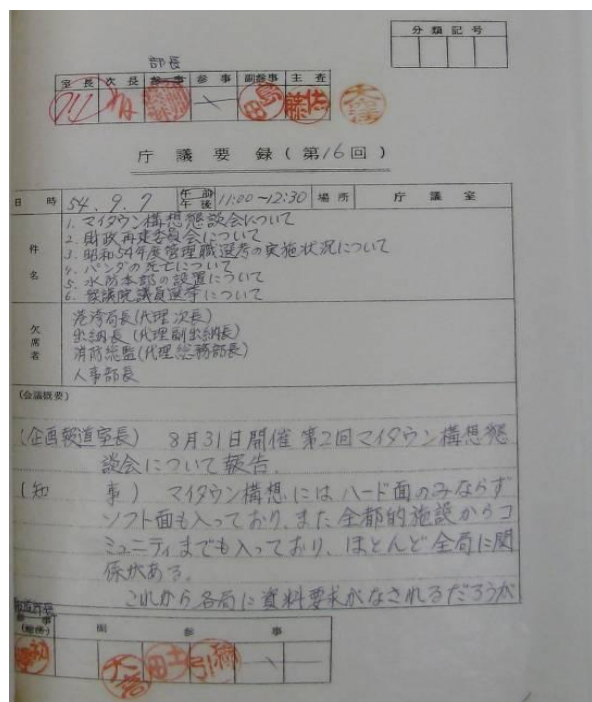 分類記号
部長
室長 次長 参事 参事 副参事 主査
佐藤
庁議要録(第16回)
日時 54.9.7 午前 午後 11:00〜12:30 場所 庁議室
件名
1. マイタウン構想懇談会について
2. 財政再建委員会について
3. 昭和54年度管理職選考の実施状況について
4. パンダの死亡について
5. 水防本部の設置について
6. 衆議院議員選挙について
欠席者
港湾局長(代理次長)
出納長(代理副出納長)
消防総監(代理総務部長)
人事部長
(会議概要)
(企画報道室長) 8月31日開催 第2回マイタウン構想懇
談会について報告.
(知事) マイタウン構想にはハード面のみならず
ソフト面も入っており、また全都的施設からコ
ミュニティまでも入っており、ほとんど全局に関
係がある.
これから各局に資料要求がなされるだろうが
参事
(総務)
副参事